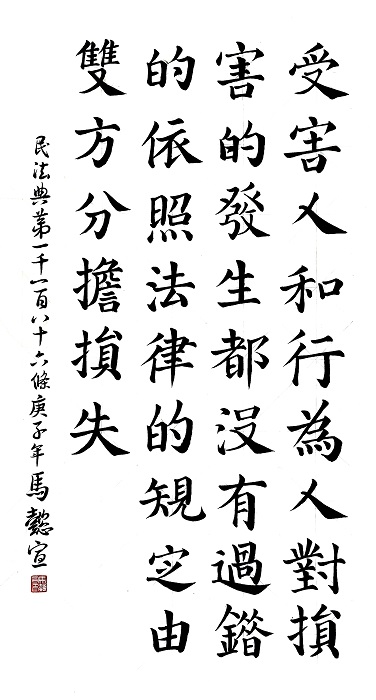 受害人和行為人對損
害的發生都沒有過錯
的依照法律的規定由
雙方分擔損失
民法典第一千一百八十六條庚子年馬懿宣